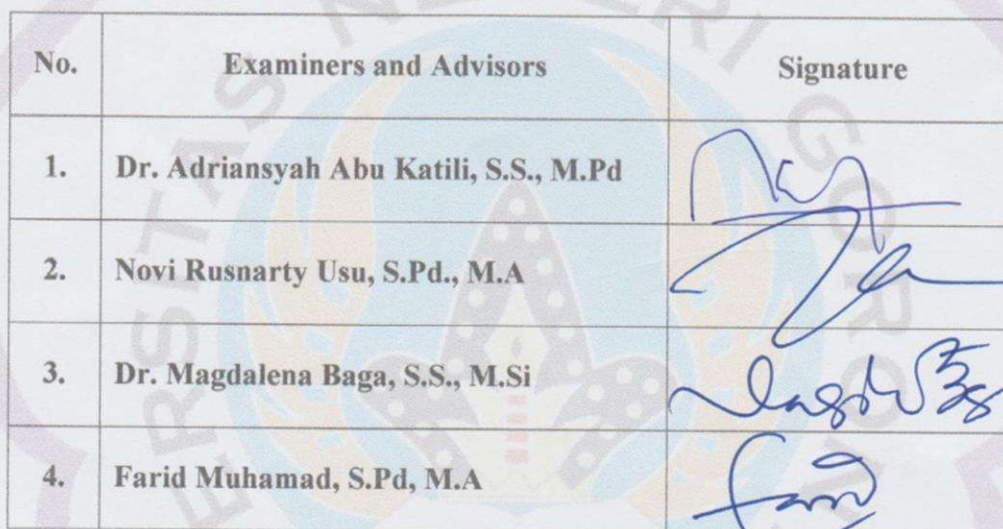 No. Examiners and Advisors Signature
1. Dr. Adriansyah Abu Katili, S.S., M.Pd
2. Novi Rusnarty Usu, S.Pd., M.A
3. Dr. Magdalena Baga, S.S., M.Si
4. Farid Muhamad, S.Pd, M.A